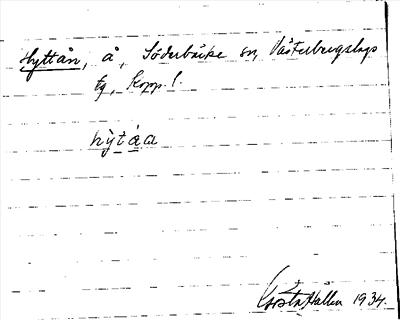 Hyttån, å, Söderbärke sn, Västerbergslags
tg, Kopp. l.
hy̆táa
Gösta Hallén 1934.